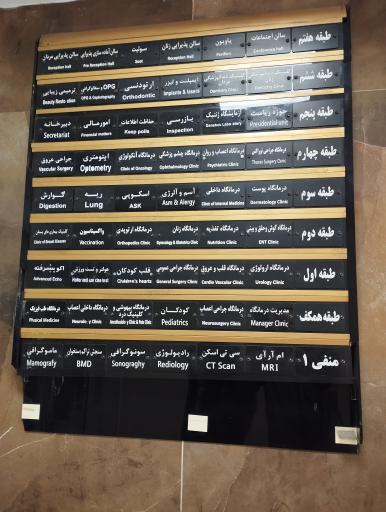 طبقه هفتم
سالن اجتماعات
پاویون
سالن پذیرایی زنان
سوئیت
سالن آماده سازی پذیرایی
سالن پذیرایی مردان
Conference hall
Pavilion
Reception Hall
Suet
Pre Reception Hall
Reception hall
طبقه ششم
ایمپلنت و لیزر
ارتودنسی
OPG و سفالوگرافی
ترمیمی زیبایی
Implants & lasers
Orthodontic
OPG & Cephalography
Beauty Restoration
طبقه پنجم
حوزه ریاست
آزمایشگاه ژنتیک
بازرسی
حفاظت اطلاعات
امور مالی
دبیرخانه
Presidential
Inspection
Keep polls
Financial matters
Secretariat
طبقه چهارم
درمانگاه جراحی توراکس
درمانگاه اعصاب و روان
درمانگاه چشم پزشکی
درمانگاه آنکولوژی
اپتومتری
جراحی عروق
Thorax Surgery Clinic
Psychiatric Clinic
Ophthalmology Clinic
Clinic of Oncology
Optometry
Vascular Surgery
طبقه سوم
درمانگاه پوست
درمانگاه داخلی
آسم و آلرژی
اسکوپی
ریه
گوارش
Dermatology Clinic
Clinic of Internal Medicine
Asm & Alergy
ASK
Lung
Digestion
طبقه دوم
درمانگاه گوش و حلق و بینی
درمانگاه تغذیه
درمانگاه زنان
درمانگاه ارتوپدی
واکسیناسیون
کلینیک بیماری های پستان
ENT Clinic
Nutrition Clinic
Gynecology & Obstetrics Clinic
Orthopedics Clinic
Vaccination
Clinic of Breast diseases
طبقه اول
درمانگاه ارولوژی
درمانگاه قلب و عروق
درمانگاه جراحی عمومی
قلب کودکان
هولتر و تست ورزش
اکو پیشرفته
Urology Clinic
Cardio Vascular Clinic
General Surgery Clinic
Children's hearts
Holter and exercise test
Advanced Echo
طبقه همکف
مدیریت درمانگاه
درمانگاه جراحی اعصاب
کودکان
درمانگاه بیهوشی و کلینیک درد
درمانگاه داخلی اعصاب
درمانگاه طب فیزیکی
Manager Clinic
Neurosurgery Clinic
Pediatrics
Neurology Clinic
Physical Medicine
منفی ۱
ام آر آی
سی تی اسکن
رادیولوژی
سونوگرافی
سنجش تراکم استخوان
ماموگرافی
MRI
CT Scan
Rediology
Sonography
BMD
Mamografy